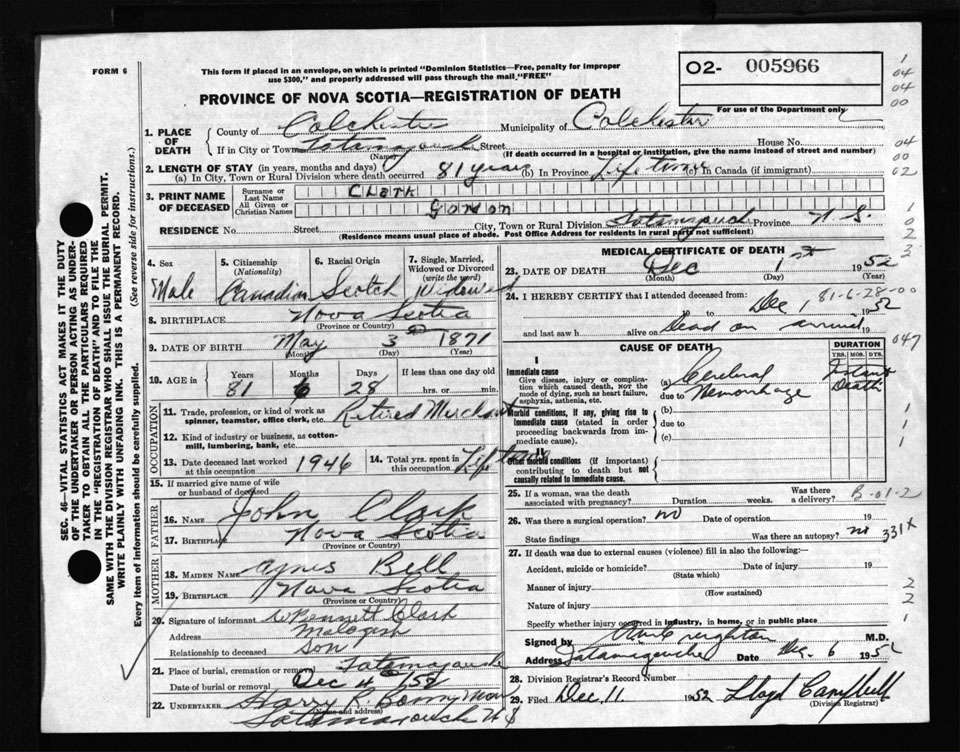 FORM 6
This form if placed in an envelope, on which is printed "Dominion Statistics—Free, penalty for improper
use $300," and properly addressed will pass through the mail "FREE"
PROVINCE OF NOVA SCOTIA—REGISTRATION OF DEATH
O2- 005966
For use of the Department only
1
04
04
00
04
00
02
1
0
2
3
1. PLACE OF DEATH
County of Colchester Municipality of Colchester
If in City or Town Tatamagouche Street House No.
(Name) (If death occurred in a hospital or institution, give the name instead of street and number)
2. LENGTH OF STAY (in years, months and days)
(a) In City, Town or Rural Division where death occurred 81 years (b) In Province Life time (c) In Canada (if immigrant)
3. PRINT NAME OF DECEASED
Surname or Last Name Clark
All Given or Christian Names Gordon
RESIDENCE No. Street City, Town or Rural Division Tatamagouche Province N. S.
(Residence means usual place of abode. Post Office Address for residents in rural parts not sufficient)
4. Sex Male
5. Citizenship (Nationality) Canadian
6. Racial Origin Scotch
7. Single, Married, Widowed or Divorced (write the word) Widowed
8. BIRTHPLACE Nova Scotia
(Province or Country)
9. DATE OF BIRTH May 3 1871
(Month) (Day) (Year)
10. AGE in Years 81 Months 6 Days 28 If less than one day old hrs. or min.
OCCUPATION
11. Trade, profession, or kind of work as spinner, teamster, office clerk, etc. Retired Merchant
12. Kind of industry or business, as cotton-mill, lumbering, bank, etc.
13. Date deceased last worked at this occupation 1946
14. Total yrs. spent in this occupation Life time
15. If married give name of wife or husband of deceased
FATHER
16. NAME John Clark
17. BIRTHPLACE Nova Scotia
(Province or Country)
MOTHER
18. MAIDEN NAME Agnes Bell
19. BIRTHPLACE Nova Scotia
(Province or Country)
20. Signature of informant Bennett Clark
Address Malagash
Relationship to deceased Son
21. Place of burial, cremation or removal Tatamagouche
Date of burial or removal Dec 4 /52
22. UNDERTAKER Harry R. Bonnyman
(Name and address)
Tatamagouche N S
MEDICAL CERTIFICATE OF DEATH
23. DATE OF DEATH Dec 1st 1952
(Month) (Day) (Year)
24. I HEREBY CERTIFY that I attended deceased from: Dec 1, 81-6-28-00
19 to 1952
and last saw h alive on Dead on arrival 19
CAUSE OF DEATH
DURATION
YRS. MOS. DYS.
047
I
Immediate cause
Give disease, injury or complication which caused death, not the mode of dying, such as heart failure, asphyxia, asthenia, etc.
(a) Cerebral
due to Hemorrhage
Instant Death
Morbid conditions, if any, giving rise to immediate cause (stated in order proceeding backwards from immediate cause).
(b)
due to
(c)
1
1
1
II
Other morbid conditions (if important) contributing to death but not causally related to immediate cause.
25. If a woman, was the death associated with pregnancy? Duration weeks. Was there a delivery? B-01-2
26. Was there a surgical operation? no Date of operation 19
State findings Was there an autopsy? no 331X
27. If death was due to external causes (violence) fill in also the following:—
Accident, suicide or homicide? Date of injury 19
(State which)
Manner of injury 2
(How sustained)
Nature of injury 2
Specify whether injury occurred in industry, in home, or in public place 1
Signed by Creighton M.D.
Address Tatamagouche Date Dec. 6 1952
28. Division Registrar's Record Number
29. Filed Dec 11 1952 Lloyd Campbell
(Division Registrar)
SEC. 46—VITAL STATISTICS ACT MAKES IT THE DUTY
OF THE UNDERTAKER OR PERSON ACTING AS UNDERTAKER TO OBTAIN ALL THE PARTICULARS REQUIRED
IN THE "REGISTRATION OF DEATH" AND TO FILE THE
SAME WITH THE DIVISION REGISTRAR WHO SHALL ISSUE THE BURIAL PERMIT.
WRITE PLAINLY WITH UNFADING INK. THIS IS A PERMANENT RECORD.
Every item of information should be carefully supplied. (See reverse side for instructions.)